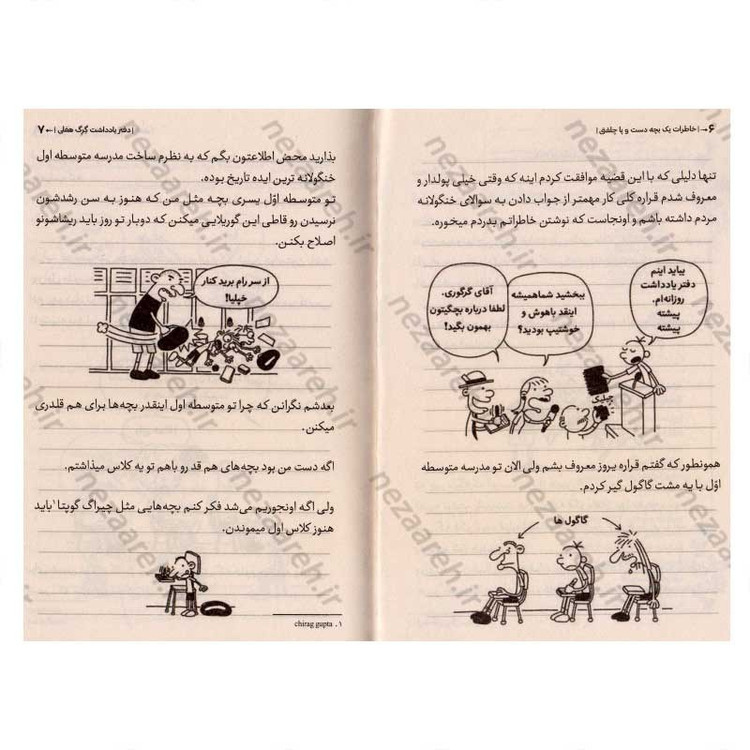 ۶ | خاطرات یک بچه دست و پا چلفتی |
تنها دلیلی که با این قضیه موافقت کردم اینه که وقتی خیلی پولدار و
معروف شدم قراره کلی کار مهمتر از جواب دادن به سوالای خنگولانه
مردم داشته باشم و اونجاست که نوشتن خاطراتم بدردم میخوره.
بیاید اینم
دفتر یادداشت
روزانه‌ام.
پیشته
پیشته
ببخشید شما همیشه
اینقد باهوش و
خوشتیپ بودید؟
آقای گرگوری.
لطفا درباره بچگیتون
بهمون بگید!
چیلیک
همونطور که گفتم قراره یروز معروف بشم ولی الان تو مدرسه متوسطه
اوّل با یه مشت گاگول گیر کردم.
گاگول ها
| دفتر یادداشت گرگ هفلی | ۷
بذارید محض اطلاعتون بگم که به نظرم ساخت مدرسه متوسطه اول
خنگولانه ترین ایده تاریخ بوده.
تو متوسطه اوّل یسری بچه مثل من که هنوز به سن رشدشون
نرسیدن رو قاطی این گوریلایی میکنن که دوبار تو روز باید ریشاشونو
اصلاح بکنن.
از سر رام برید کنار
خپلیا!
بعدشم نگرانن که چرا تو متوسطه اول اینقدر بچه‌ها برای هم قلدری
میکنن.
اگه دست من بود بچه‌های هم قد رو باهم تو یه کلاس میذاشتم.
ولی اگه اونجوریم می‌شد فکر کنم بچه‌هایی مثل چیراگ گوپتا¹ باید
هنوز کلاس اول میموندن.
۱. chirag gupta
nezaareh.ir